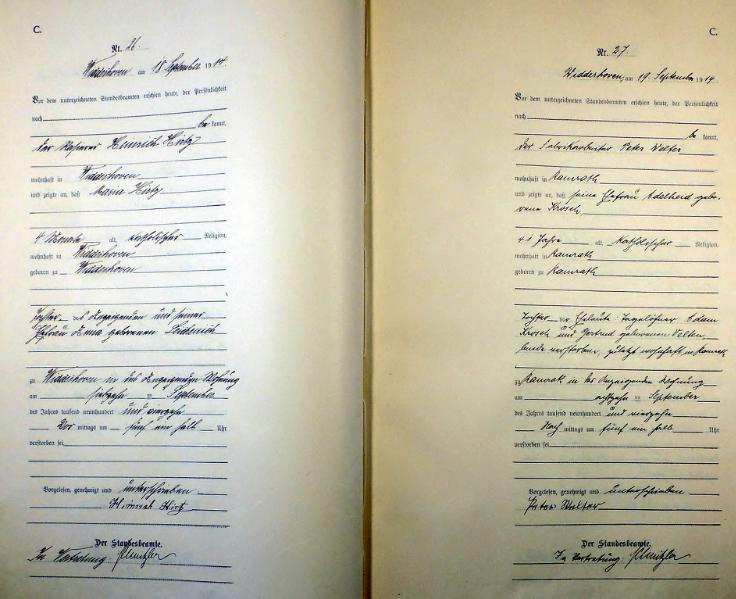 C.
Nr. 26.
am 18 September 1914.
Vor dem unterzeichneten Standesbeamten erschien heute, der Persönlichkeit
nach
be kannt,
der Heinrich Hirtz
wohnhaft in
und zeigte an, daß Maria Hirtz
4 Monate alt, katholischer Religion,
wohnhaft in
geboren zu
Tochter des Anzeigenden und seiner
Ehefrau Anna geborenen
zu in des Anzeigenden Wohnung
am September
des Jahres tausend neunhundert und vierzehn
Vor mittags um fünf ein halb Uhr
verstorben sei
Vorgelesen, genehmigt und unterschrieben
Heinrich Hirtz
Der Standesbeamte.
In Vertretung
C.
Nr. 27.
am 19. September 1914
Vor dem unterzeichneten Standesbeamten erschien heute, der Persönlichkeit
nach
be kannt,
der Fabrikarbeiter Peter Welter
wohnhaft in Ramrath
und zeigte an, daß seine Ehefrau Adelheid gebo-
rene Krosch
41 Jahre alt, katholischer Religion,
wohnhaft in Ramrath
geboren zu Ramrath
Tochter der Eheleute Tagelöhner Adam
Krosch und Gertrud geborenen
beide verstorben, zuletzt wohnhaft in Ramrath
zu Ramrath in der Anzeigenden Wohnung
am achtzehn September
des Jahres tausend neunhundert und vierzehn
Nach mittags um fünf ein halb Uhr
verstorben sei
Vorgelesen, genehmigt und unterschrieben
Peter Welter
Der Standesbeamte.
In Vertretung